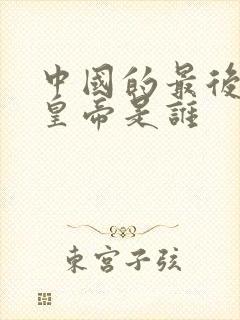 中國的最後
皇帝是誰
東宮子弦